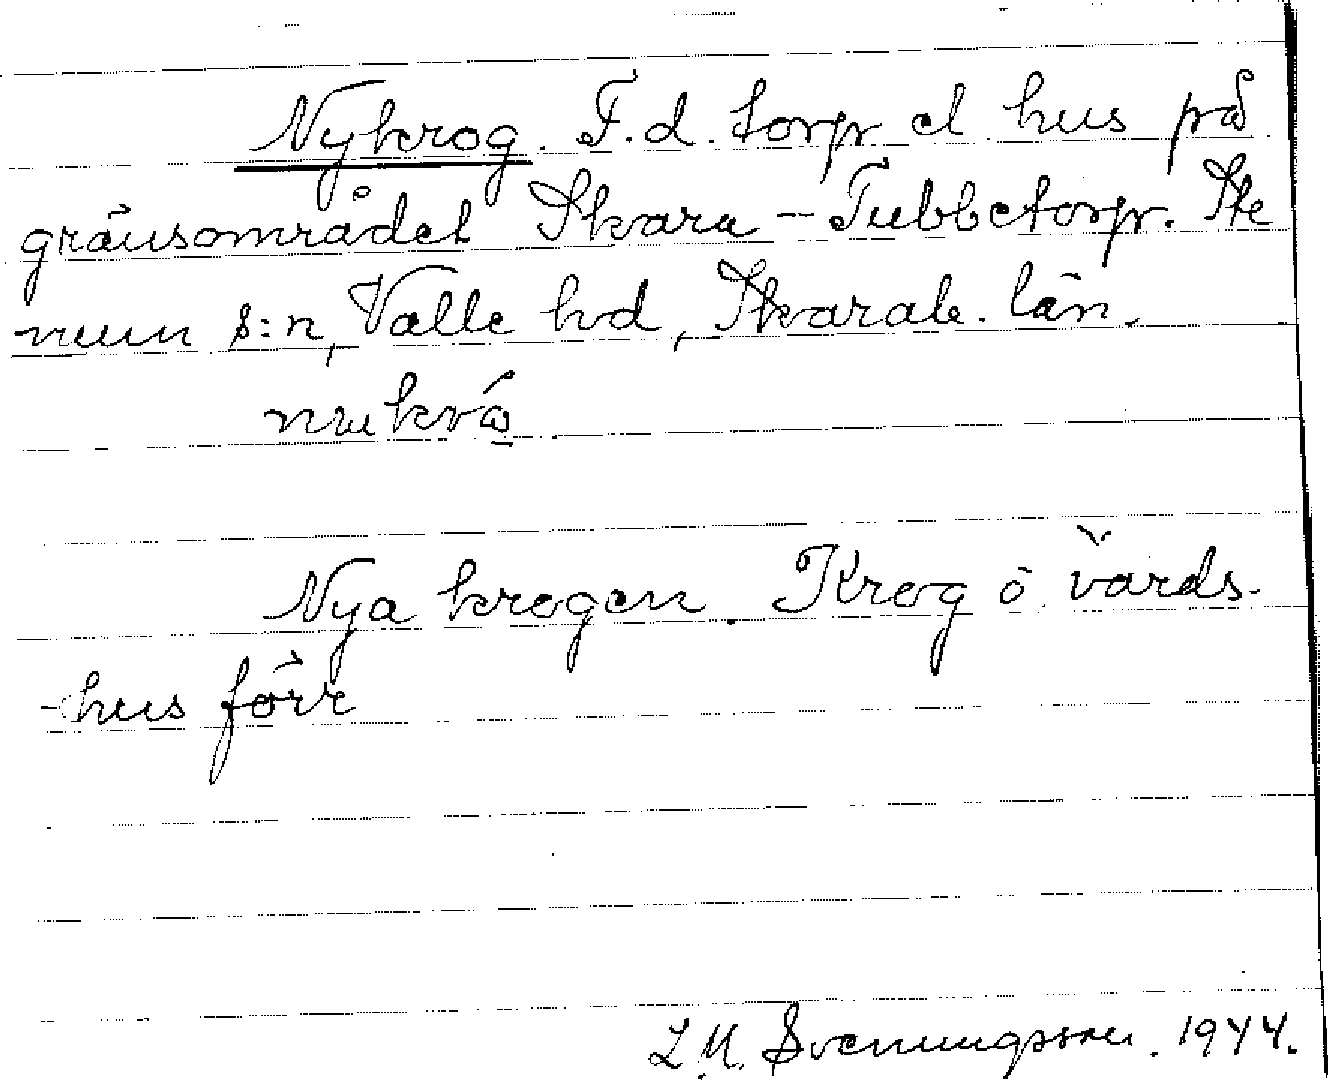 Nykrog. F.d. torp el hus på
gränsområdet Skara – Tubbetorp. Ste
num s:n, Valle hd, Skarab. län.
Nya krogen. Krog ö värds-
-hus förr
L.M. Svenungsson. 1944.